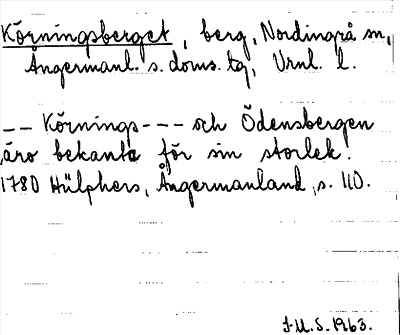 Körningsberget, berg, Nordingrå sn,
Ångermanl. s. doms. tg, Vrnl. l.
-- Körnings --- och Ödensbergen
äro bekanta för sin storlek.
1780 Hülphers, Ångermanland, s. 110.
J.U.S. 1963.